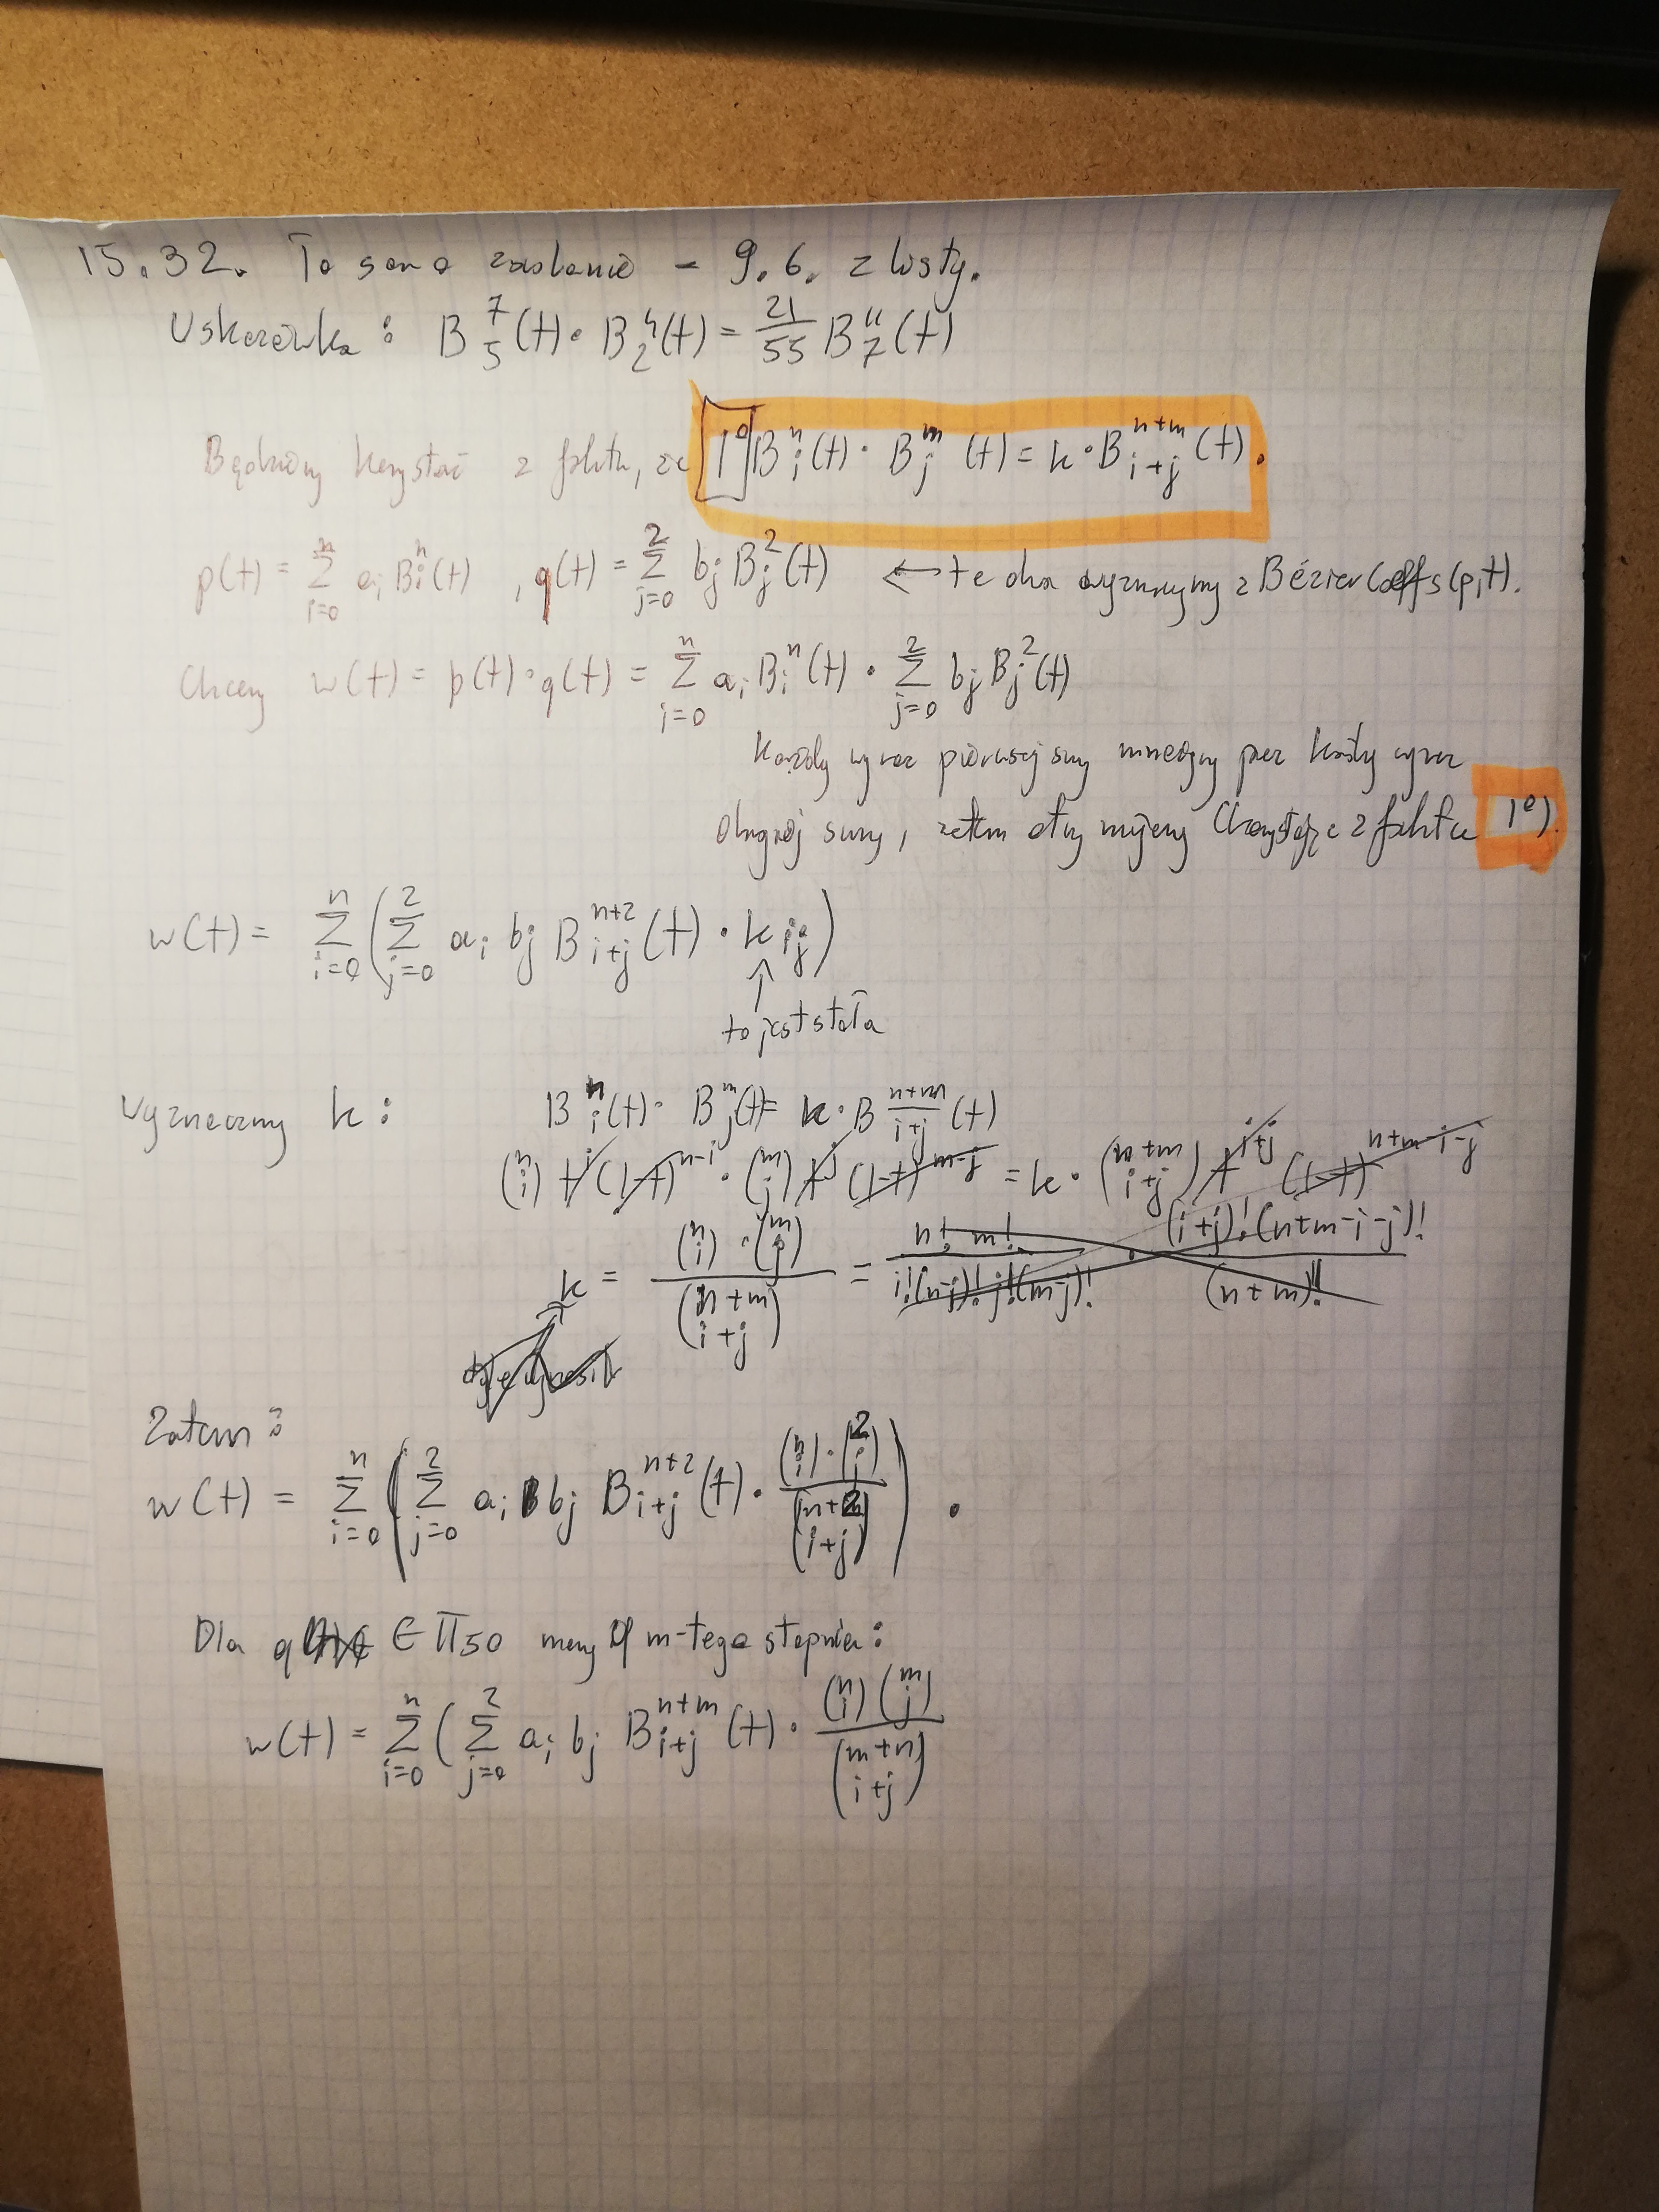 15.32. To samo zadanie - 9.6. z listy.
Wskazówka: B_5^7(t) · B_2^4(t) = 21/55 B_7^11(t)
Będziemy korzystać z faktu, że 1° B_i^n(t) · B_j^m(t) = k · B_{i+j}^{n+m}(t).
p(t) = Σ_{i=0}^n a_i B_i^n(t), q(t) = Σ_{j=0}^2 b_j B_j^2(t) ← te dwa wyznaczymy z BézierCoeffs(p,t).
Chcemy w(t) = p(t) · q(t) = Σ_{i=0}^n a_i B_i^n(t) · Σ_{j=0}^2 b_j B_j^2(t)
Każdy wyraz pierwszej sumy mnożymy przez każdy wyraz
drugiej sumy, zatem otrzymujemy (korzystając z faktu 1°).
w(t) = Σ_{i=0}^n (Σ_{j=0}^2 a_i b_j B_{i+j}^{n+2}(t) · k_{ij})
↑
to jest stała
Wyznaczmy k: B_i^n(t) · B_j^m(t) = k · B_{i+j}^{n+m}(t)
(n i) t^i (1-t)^{n-i} · (m j) t^j (1-t)^{m-j} = k · (n+m i+j) t^{i+j} (1-t)^{n+m-i-j}
k = (n i) · (m j) / (n+m i+j) = n! m! / i!(n-j)! j!(m-j)! · (i+j)!(n+m-i-j)! / (n+m)!
Zatem:
w(t) = Σ_{i=0}^n (Σ_{j=0}^2 a_i b_j B_{i+j}^{n+2}(t) · (n i) · (2 j) / (n+2 i+j)).
Dla q ∈ Π50 mamy q m-tego stopnia:
w(t) = Σ_{i=0}^n (Σ_{j=0}^2 a_i b_j B_{i+j}^{n+m}(t) · (n i) (m j) / (m+n i+j)